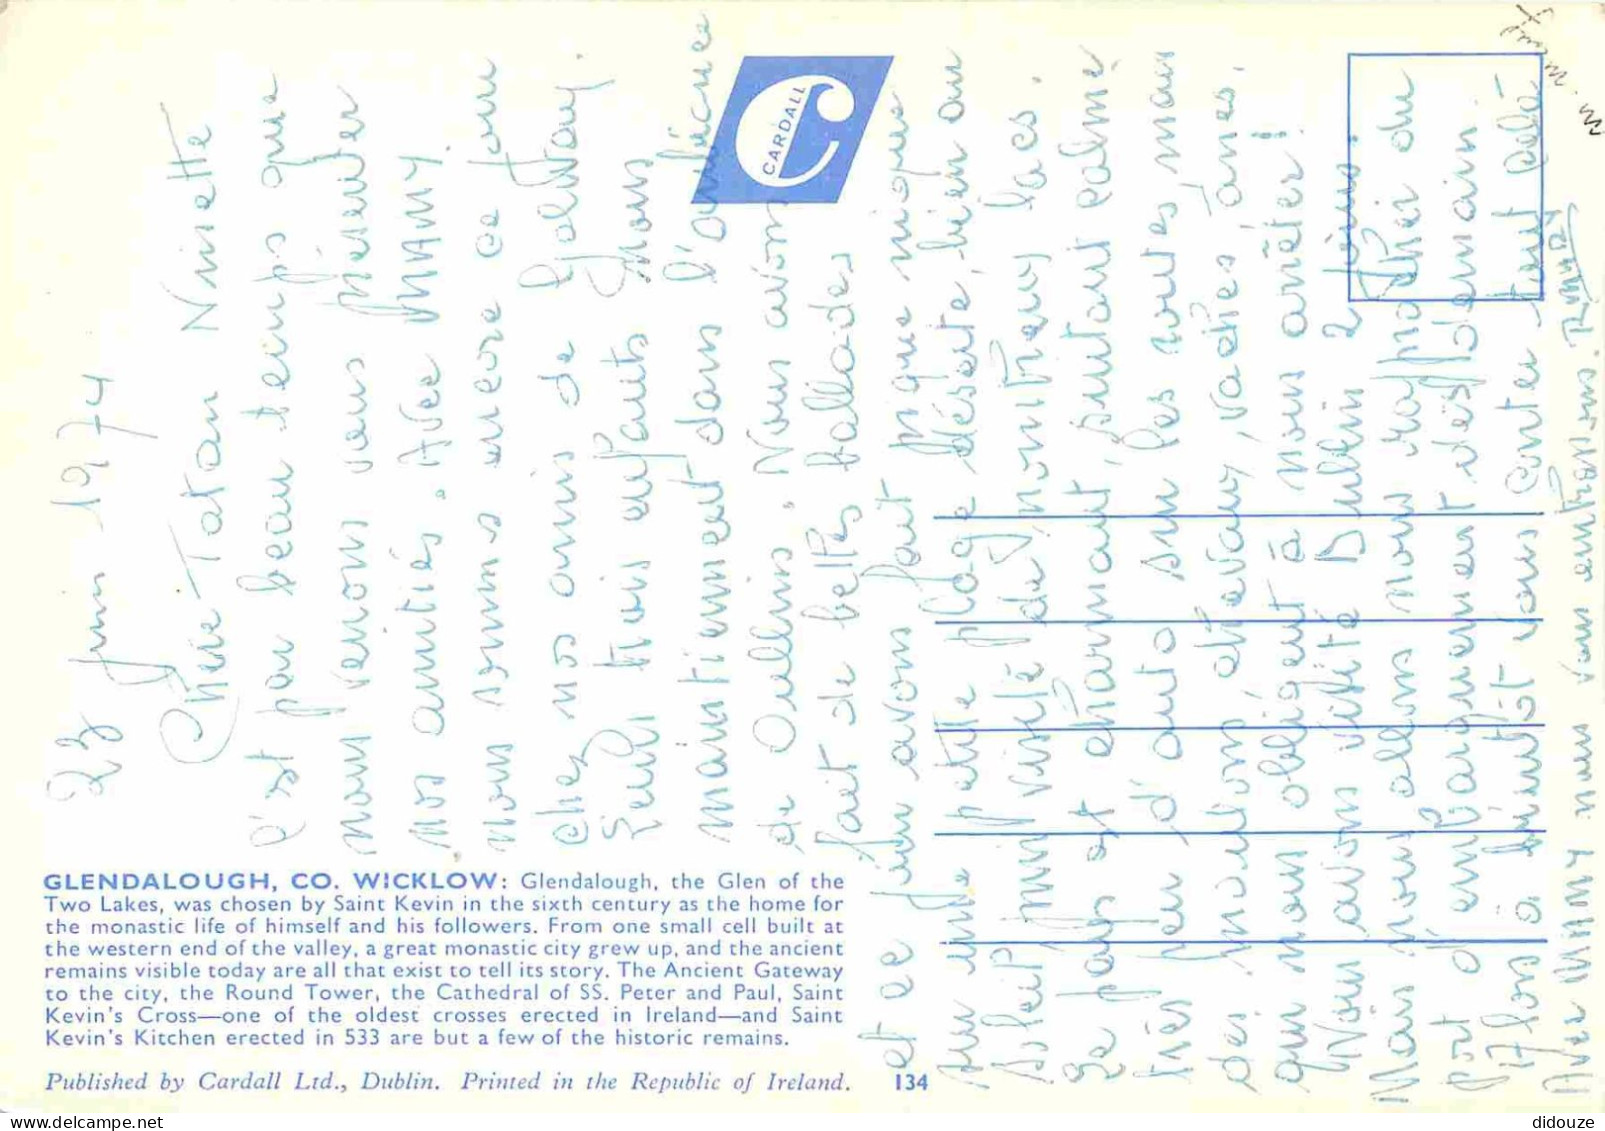 23 Juin 1974
Chère Tatan Ninette
C'est par beau temps que
nous venons vous présenter
nos amitiés. Avec MAMY.
nous sommes encore ce jour
chez nos amis de Galway.
Leurs trois enfants
maintiennent dans l'ambiance
de Oullins. Nous avons
fait de belles ballades
et ce jour avons fait pique nique
sur une petite plage déserte, bien au
soleil, puis visité de nombreux lacs.
Le pays est charmant, surtout calme
très peu d'auto sur les routes, mais
des moutons, chevaux, vaches, ânes,
qui nous obligent à nous arrêter!
Nous avons visité Dublin 2 fois.
Mais nous allons nous rapprocher du
port d'embarquement dès demain.
Alors à bientôt vous conter tout cela
Avec MAMY nous vous embrassons.
CARDALL
GLENDALOUGH, CO. WICKLOW: Glendalough, the Glen of the
Two Lakes, was chosen by Saint Kevin in the sixth century as the home for
the monastic life of himself and his followers. From one small cell built at
the western end of the valley, a great monastic city grew up, and the ancient
remains visible today are all that exist to tell its story. The Ancient Gateway
to the city, the Round Tower, the Cathedral of SS. Peter and Paul, Saint
Kevin's Cross—one of the oldest crosses erected in Ireland—and Saint
Kevin's Kitchen erected in 533 are but a few of the historic remains.
Published by Cardall Ltd., Dublin. Printed in the Republic of Ireland. 134
didouze